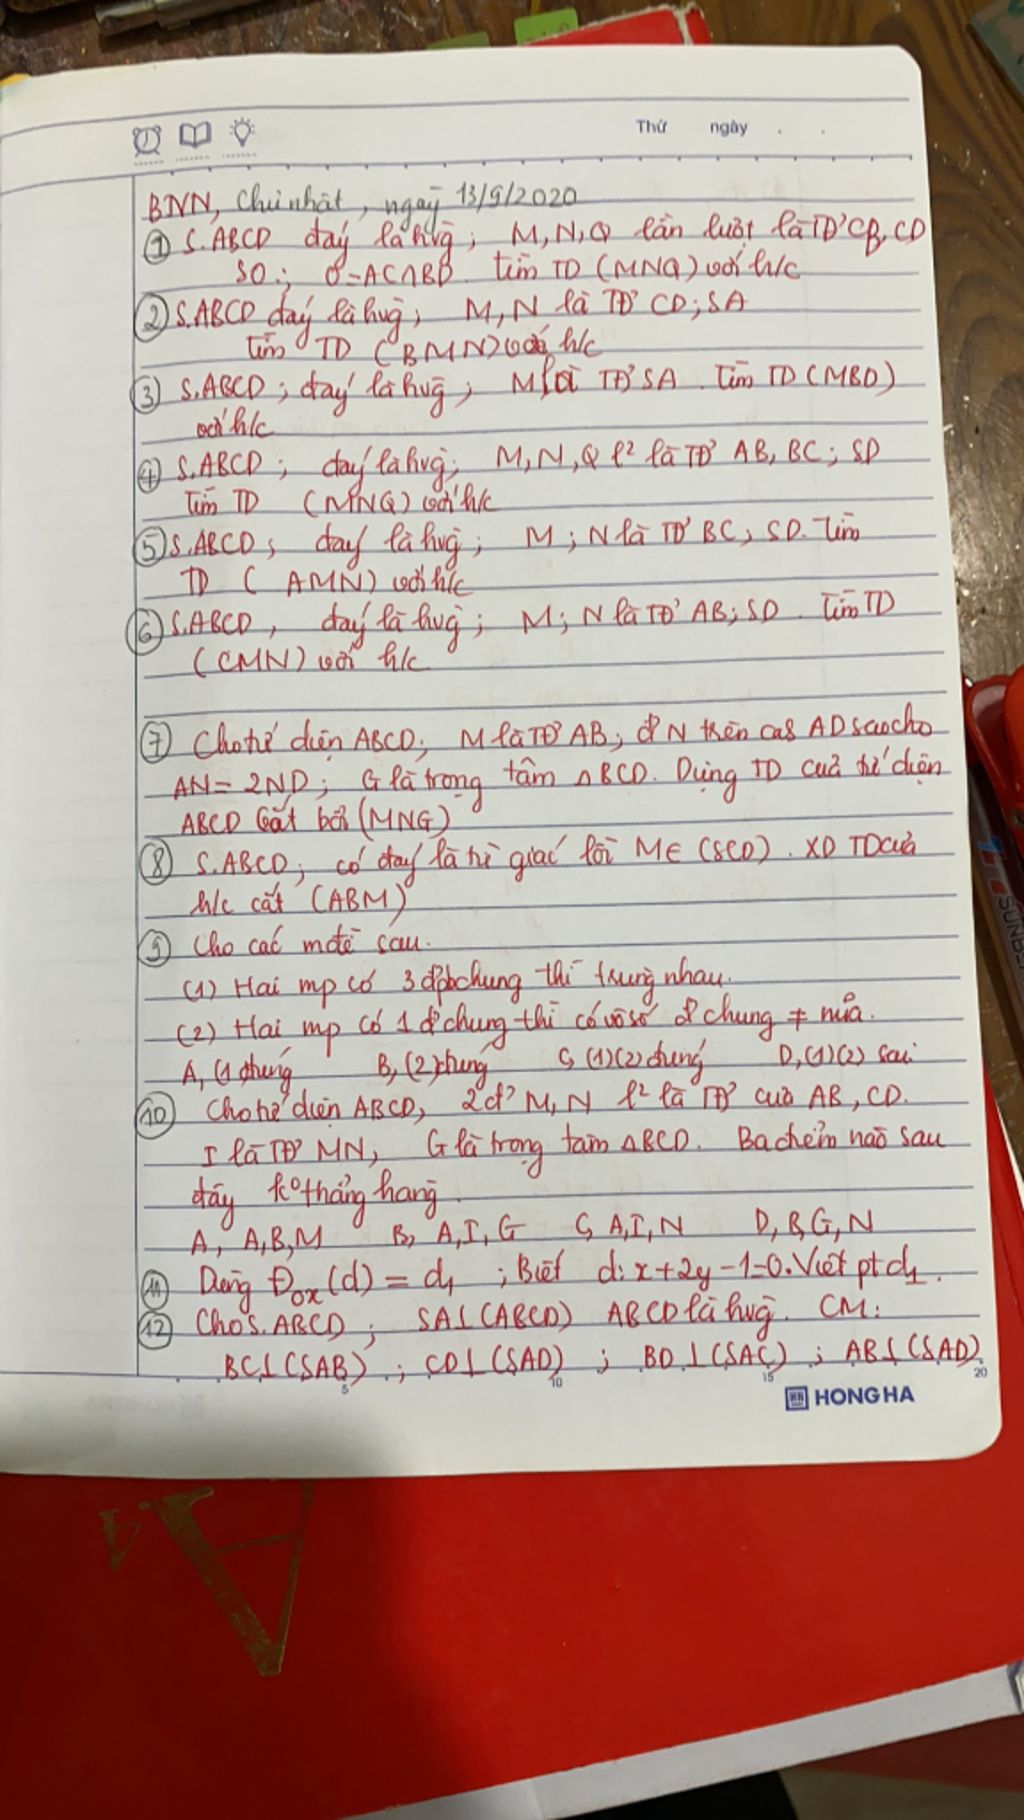 Thứ ngày . .
BNN, Chủ nhật, ngày 13/9/2020
① S.ABCD đáy là hvg; M,N,Q lần lượt là TĐ' CB, CD
SO; O=AC∩BD. Tìm TD (MNQ) với h/c
② S.ABCD đáy là hvg; M,N là TĐ' CD; SA
Tìm TD (BMN) với h/c
③ S.ABCD; đáy là hvg; M là TĐ' SA. Tìm TD (MBD)
với h/c
④ S.ABCD; đáy là hvg; M,N,Q l² là TĐ' AB, BC; SD
Tìm TD (MNQ) với h/c
⑤ S.ABCD; đáy là hvg; M;N là TĐ' BC; SD. Tìm
TD (AMN) với h/c
⑥ S.ABCD, đáy là hvg; M;N là TĐ' AB; SD. Tìm TD
(CMN) với h/c
⑦ Cho tứ diện ABCD; M là TĐ' AB; đ' N trên cạ AD sao cho
AN=2ND; G là trọng tâm △BCD. Dựng TD của tứ diện
ABCD cắt bởi (MNG)
⑧ S.ABCD; có đáy là tứ giác lồi M∈(SCD). XĐ TD của
h/c cắt (ABM)
⑨ Cho các mđề sau.
(1) Hai mp có 3 đ'pb chung thì trùng nhau.
(2) Hai mp có 1 đ' chung thì có vô số đ' chung ≠ nữa.
A, (1) đúng B, (2) đúng C, (1)(2) đúng D, (1)(2) sai
⑩ Cho tứ diện ABCD, 2 đ' M,N l² là TĐ' của AB, CD.
I là TĐ' MN, G là trọng tâm △BCD. Ba điểm nào sau
đây kº thẳng hàng.
A, A,B,M B, A,I,G C, A,I,N D, B,G,N
⑪ Dùng Đox(d) = d₁ ; Biết d: x+2y-1=0. Viết pt d₁.
⑫ Cho S.ABCD; SA⊥(ABCD) ABCD là hvg. CM:
BC⊥(SAB); CD⊥(SAD); BD⊥(SAC); AB⊥(SAD)
5 10 15 20
HONG HA